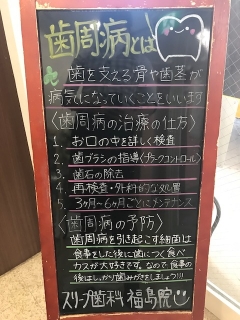 歯周病とは
歯を支える骨や歯茎が
病気になっていくことをいいます
〈歯周病の治療の仕方〉
1. お口の中を詳しく検査
2. 歯ブラシの指導(プラークコントロール)
3. 歯石の除去
4. 再検査・外科的な処置
5. 3ヶ月~6ヶ月ごとにメンテナンス
〈歯周病の予防〉
歯周病を引き起こす細菌は
食事をした後に歯につく食べ
カスが大好きです。なので食事の
後はしっかり歯みがきをしましょう!!!
スリープ歯科 福島院